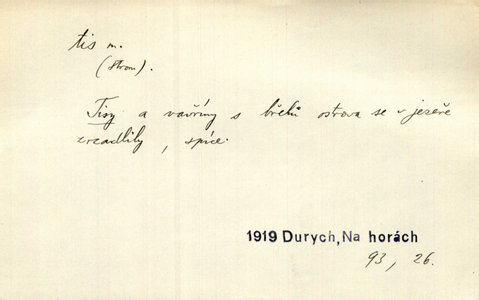 tis m.
(strom).
Tisy a vavříny s břehů ostrova se v jezeře
zrcadlily, spíce.
1919 Durych, Na horách
93, 26.